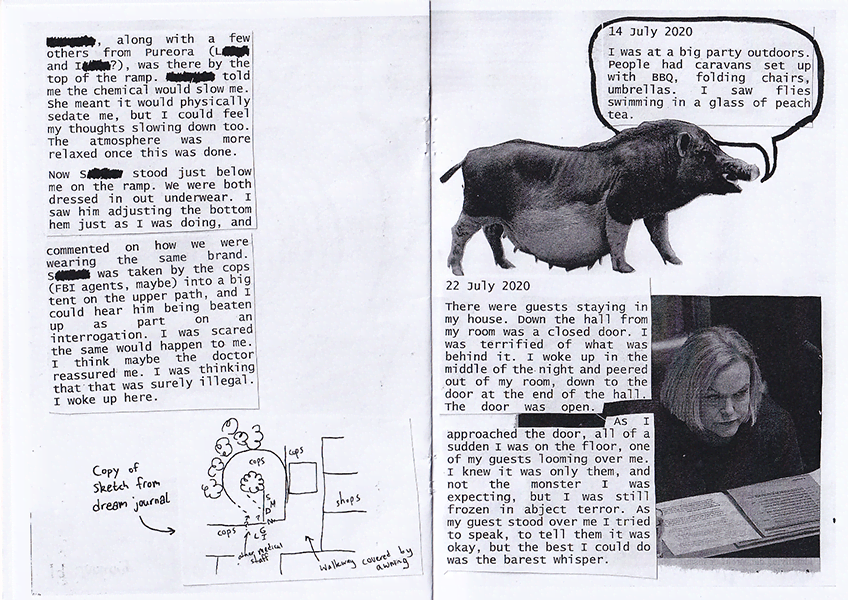 , along with a few
others from Pureora (L
and I ?), was there by the
top of the ramp. told
me the chemical would slow me.
She meant it would physically
sedate me, but I could feel
my thoughts slowing down too.
The atmosphere was more
relaxed once this was done.
Now S stood just below
me on the ramp. We were both
dressed in out underwear. I
saw him adjusting the bottom
hem just as I was doing, and
commented on how we were
wearing the same brand.
S was taken by the cops
(FBI agents, maybe) into a big
tent on the upper path, and I
could hear him being beaten
up as part on an
interrogation. I was scared
the same would happen to me.
I think maybe the doctor
reassured me. I was thinking
that that was surely illegal.
I woke up here.
Copy of
sketch from
dream journal
cops
cops
cops
shops
other medical
staff
walkway covered by
awning
14 July 2020
I was at a big party outdoors.
People had caravans set up
with BBQ, folding chairs,
umbrellas. I saw flies
swimming in a glass of peach
tea.
22 July 2020
There were guests staying in
my house. Down the hall from
my room was a closed door. I
was terrified of what was
behind it. I woke up in the
middle of the night and peered
out of my room, down to the
door at the end of the hall.
The door was open.
As I
approached the door, all of a
sudden I was on the floor, one
of my guests looming over me.
I knew it was only them, and
not the monster I was
expecting, but I was still
frozen in abject terror. As
my guest stood over me I tried
to speak, to tell them it was
okay, but the best I could do
was the barest whisper.